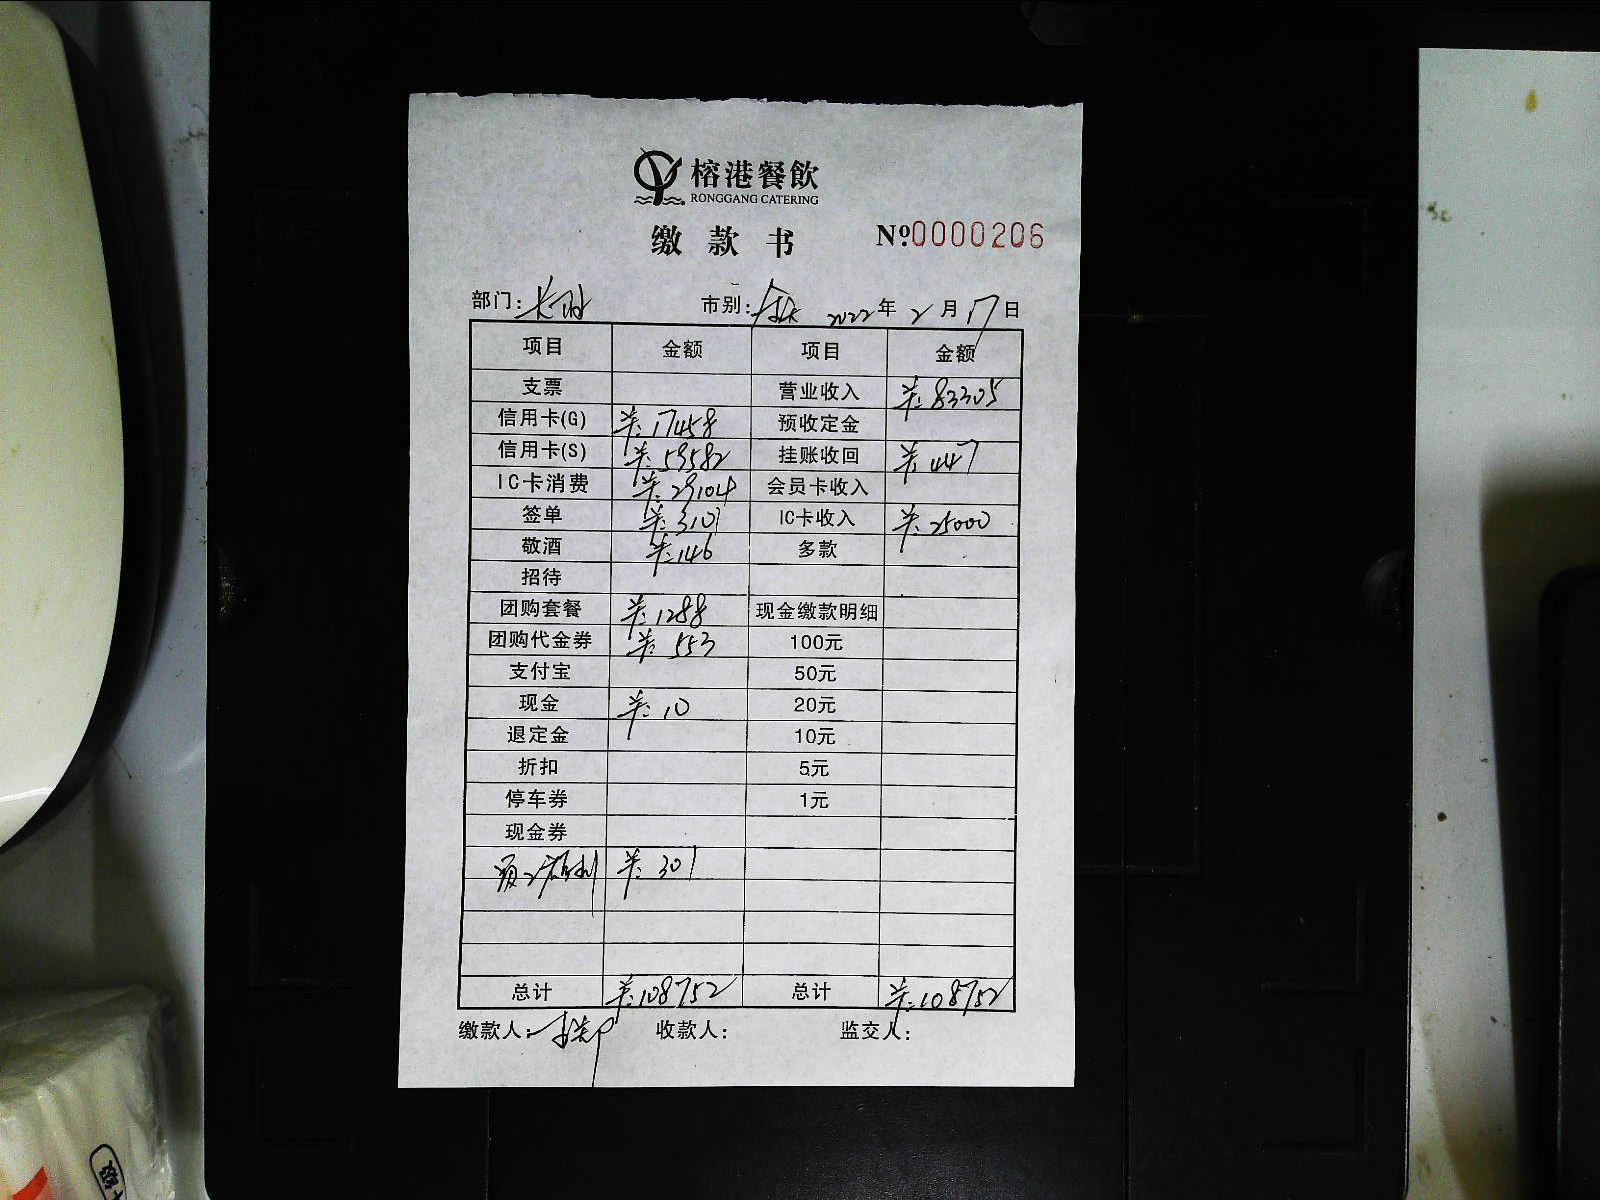 榕港餐飲
RONGGANG CATERING
缴款书 №0000206
部门: 市别: 2022年2月17日
项目 金额 项目 金额
支票 营业收入 ¥:83305
信用卡(G) ¥:17458 预收定金
信用卡(S) ¥:59582 挂账收回 ¥:447
IC卡消费 ¥:29104 会员卡收入
签单 ¥:310 IC卡收入 ¥:25000
敬酒 ¥:146 多款
招待
团购套餐 ¥:1288 现金缴款明细
团购代金券 ¥:553 100元
支付宝 50元
现金 ¥:10 20元
退定金 10元
折扣 5元
停车券 1元
现金券
¥:301
总计 ¥:108752 总计 ¥:108752
缴款人: 收款人: 监交人: